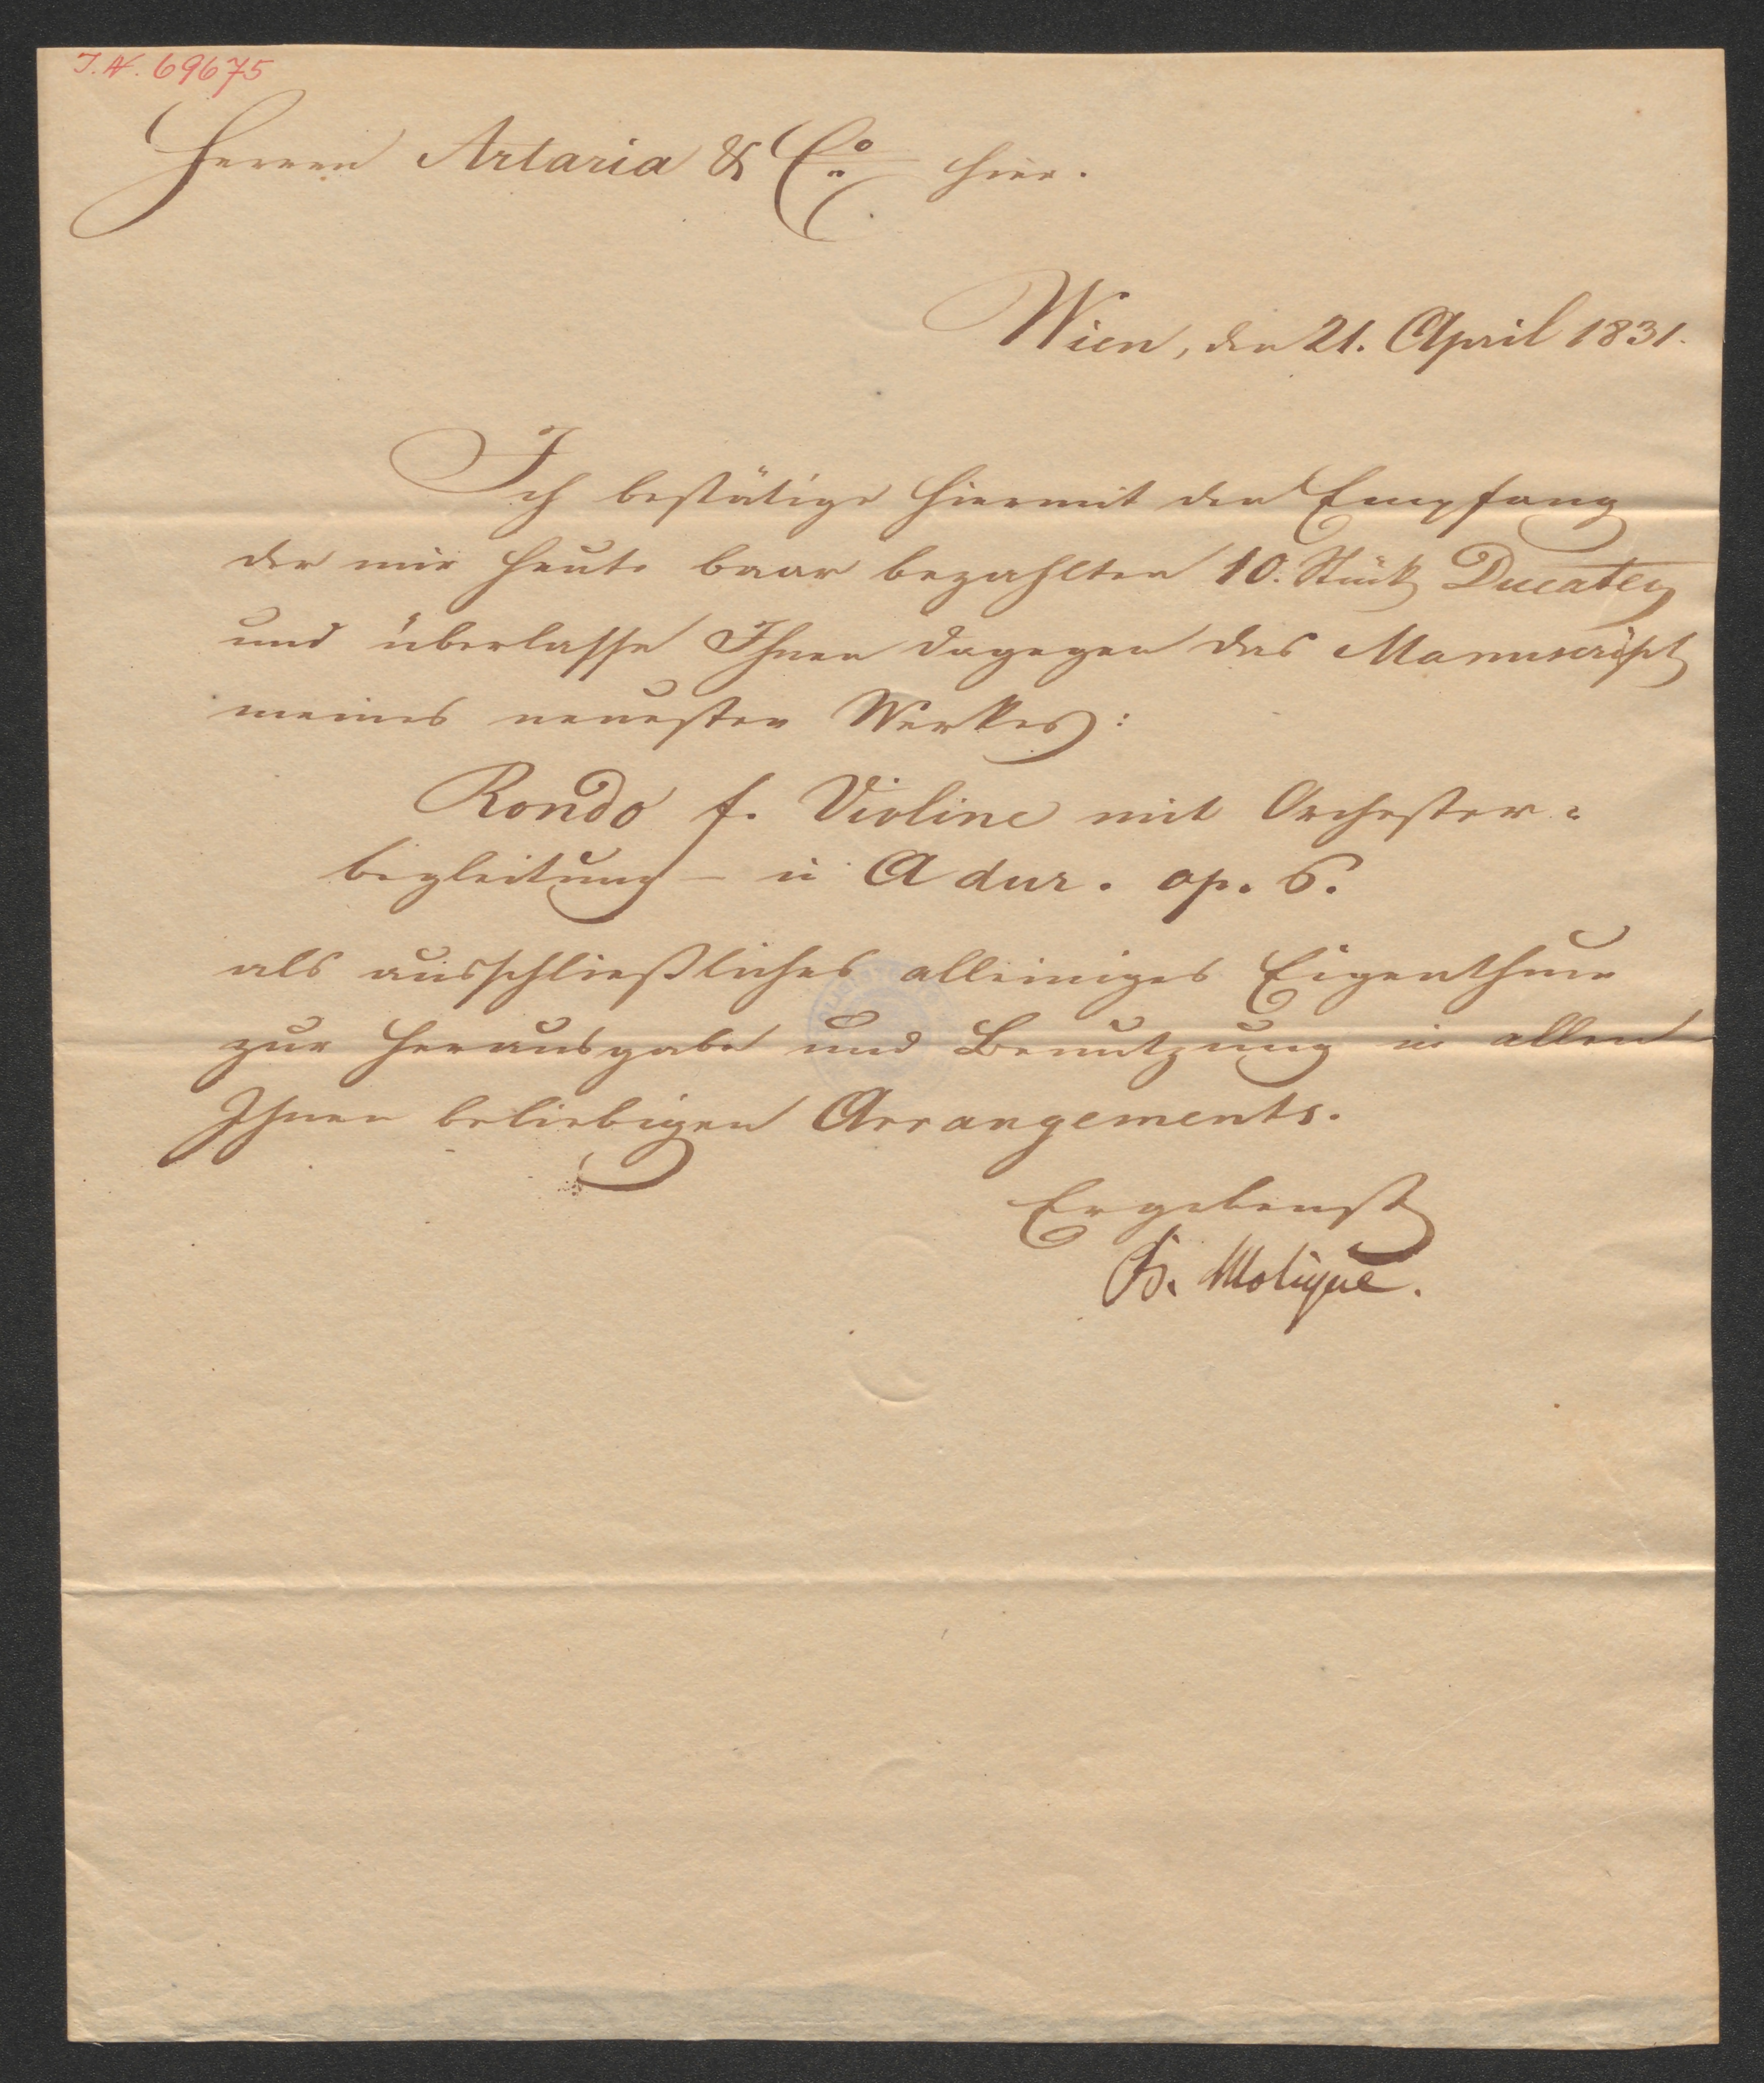 J.N. 69675
Herren Artaria & Co hier.
Wien, den 21. April 1831.
Ich bestätige hiermit den Empfang
der mir heute baar bezahlten 10. Stück Ducaten
und überlasse Ihnen dagegen das Manuscript
meines neuesten Werkes:
Rondo f. Violine mit Orchester=
begleitung – in A dur. op. 6.
als ausschließliches alleiniges Eigenthum
zur Herausgabe und Benutzung in allen
Ihnen beliebigen Arrangements.
Ergebenst
B. Molique.